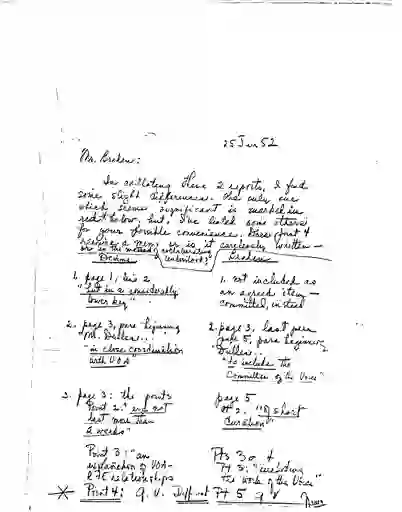 25 Jun 52
Mr. Braden:
In collating these 2 reports, I find
some slight differences. The only one
which seems significant is marked in
red below, but I've listed some others
for your possible convenience. Does point 4
or is it carelessly written —
Devine
Braden
1. page 1, line 2
"but in a considerably
lower key"
1. not included as
an agreed item —
committed, instead
2. page 3, para beginning
Mr. Dulles...
"in close coordination
with VOA"
2. page 3, last para
page 5, para beginning
Dulles...
"to include the
Committee of the Voice"
3. page 3: the points
Point 2: "
last more than
2 weeks"
page 5
# 2. "A short
duration"
Point 3: "an
explanation of VOA-
RFE relationships
Pts 3 & 4
Pt 3: "
the work of the Voice"
Point 4: q.v. Different Pt 5 q.v.